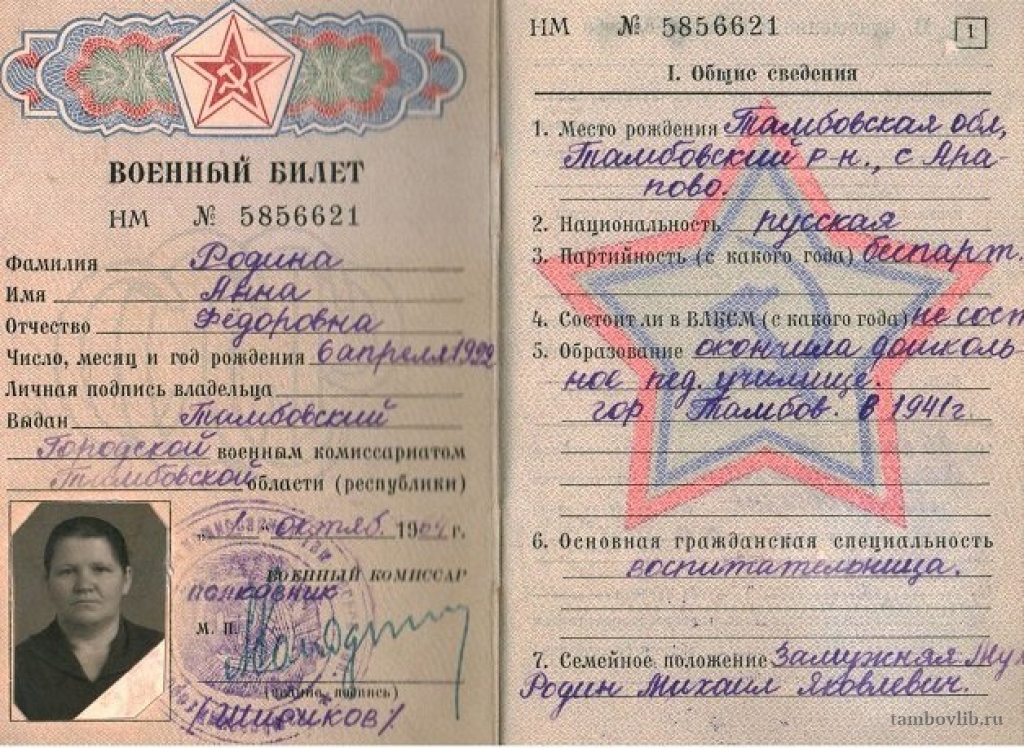 ВОЕННЫЙ БИЛЕТ
НМ № 5856621
Фамилия Родина
Имя Анна
Отчество Фёдоровна
Число, месяц и год рождения 6 апреля 1922
Личная подпись владельца
Выдан Тамбовский
Городской военным комиссариатом
Тамбовской области (республики)
„1“ октяб. 1964 г.
ВОЕННЫЙ КОМИССАР
полковник
М. П.
(звание, подпись)
/Шириков/
НМ № 5856621 1
I. Общие сведения
1. Место рождения Тамбовская обл,
Тамбовский р-н., с Ара-
пово.
2. Национальность русская
3. Партийность (с какого года) беспарт.
4. Состоит ли в ВЛКСМ (с какого года) не сост
5. Образование окончила дошколь-
ное пед. училище.
гор Тамбов. в 1941 г
6. Основная гражданская специальность
воспитательница.
7. Семейное положение Замужняя Му
Родин Михаил Яковлевич.
tambovlib.ru